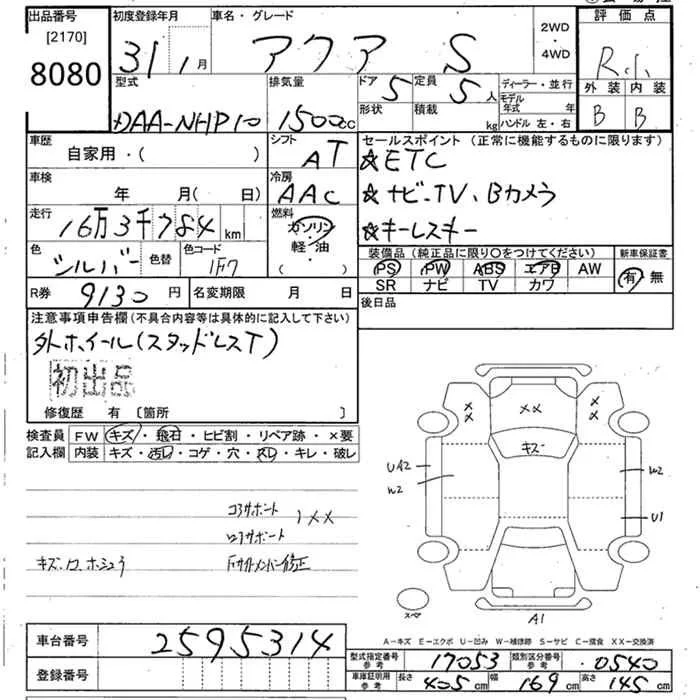 出品番号 初度登録年月 車名・グレード 評価点
[2170]
8080
31 1月 アクア S 2WD・4WD R.小
型式 排気量 ドア 5 定員 5人 ディーラー・並行 外装 内装
形状 積載 kg モデル年式 年 B B
DAA-NHP10 1500cc ハンドル 左・右
車歴 シフト セールスポイント (正常に機能するものに限ります)
自家用・( ) AT ☆ETC
車検 冷房 ☆ナビ.TV、Bカメラ
年 月( 日) AAC ☆キーレスキー
走行 燃料
16万3千784km ガソリン・軽・油・( )
装備品 (純正品に限り〇をつけてください) 新車保証書
色 シルバー 色替 色コード 1F7
PS PW ABS エアB AW 有・無
SR ナビ TV カワ
R券 9130円 名変期限 月 日 後日品
注意事項申告欄 (不具合内容等は具体的に記入して下さい)
外ホイール(スタッドレスT)
初出品
修復歴 有 [箇所 ]
検査員 FW キズ・飛石・ヒビ割・リペア跡・×要
記入欄 内装 キズ・汚レ・コゲ・穴・スレ・キレ・破レ
コアサポート
ロアサポート )××
キズ、ロ、ホシュウ Fサイドメンバー修正
×
×
××
×
×
キズ
UA2
W2
W2
U1
スペア
A1
A-キズ E-エクボ U-凹み W-補修跡 S-サビ C-腐食 XX-交換済
車台番号 2595314
登録番号
型式指定番号 参考 17053 類別区分番号 参考 0540
車庫証明用 参考 長さ 405cm 幅 169cm 高さ 145cm